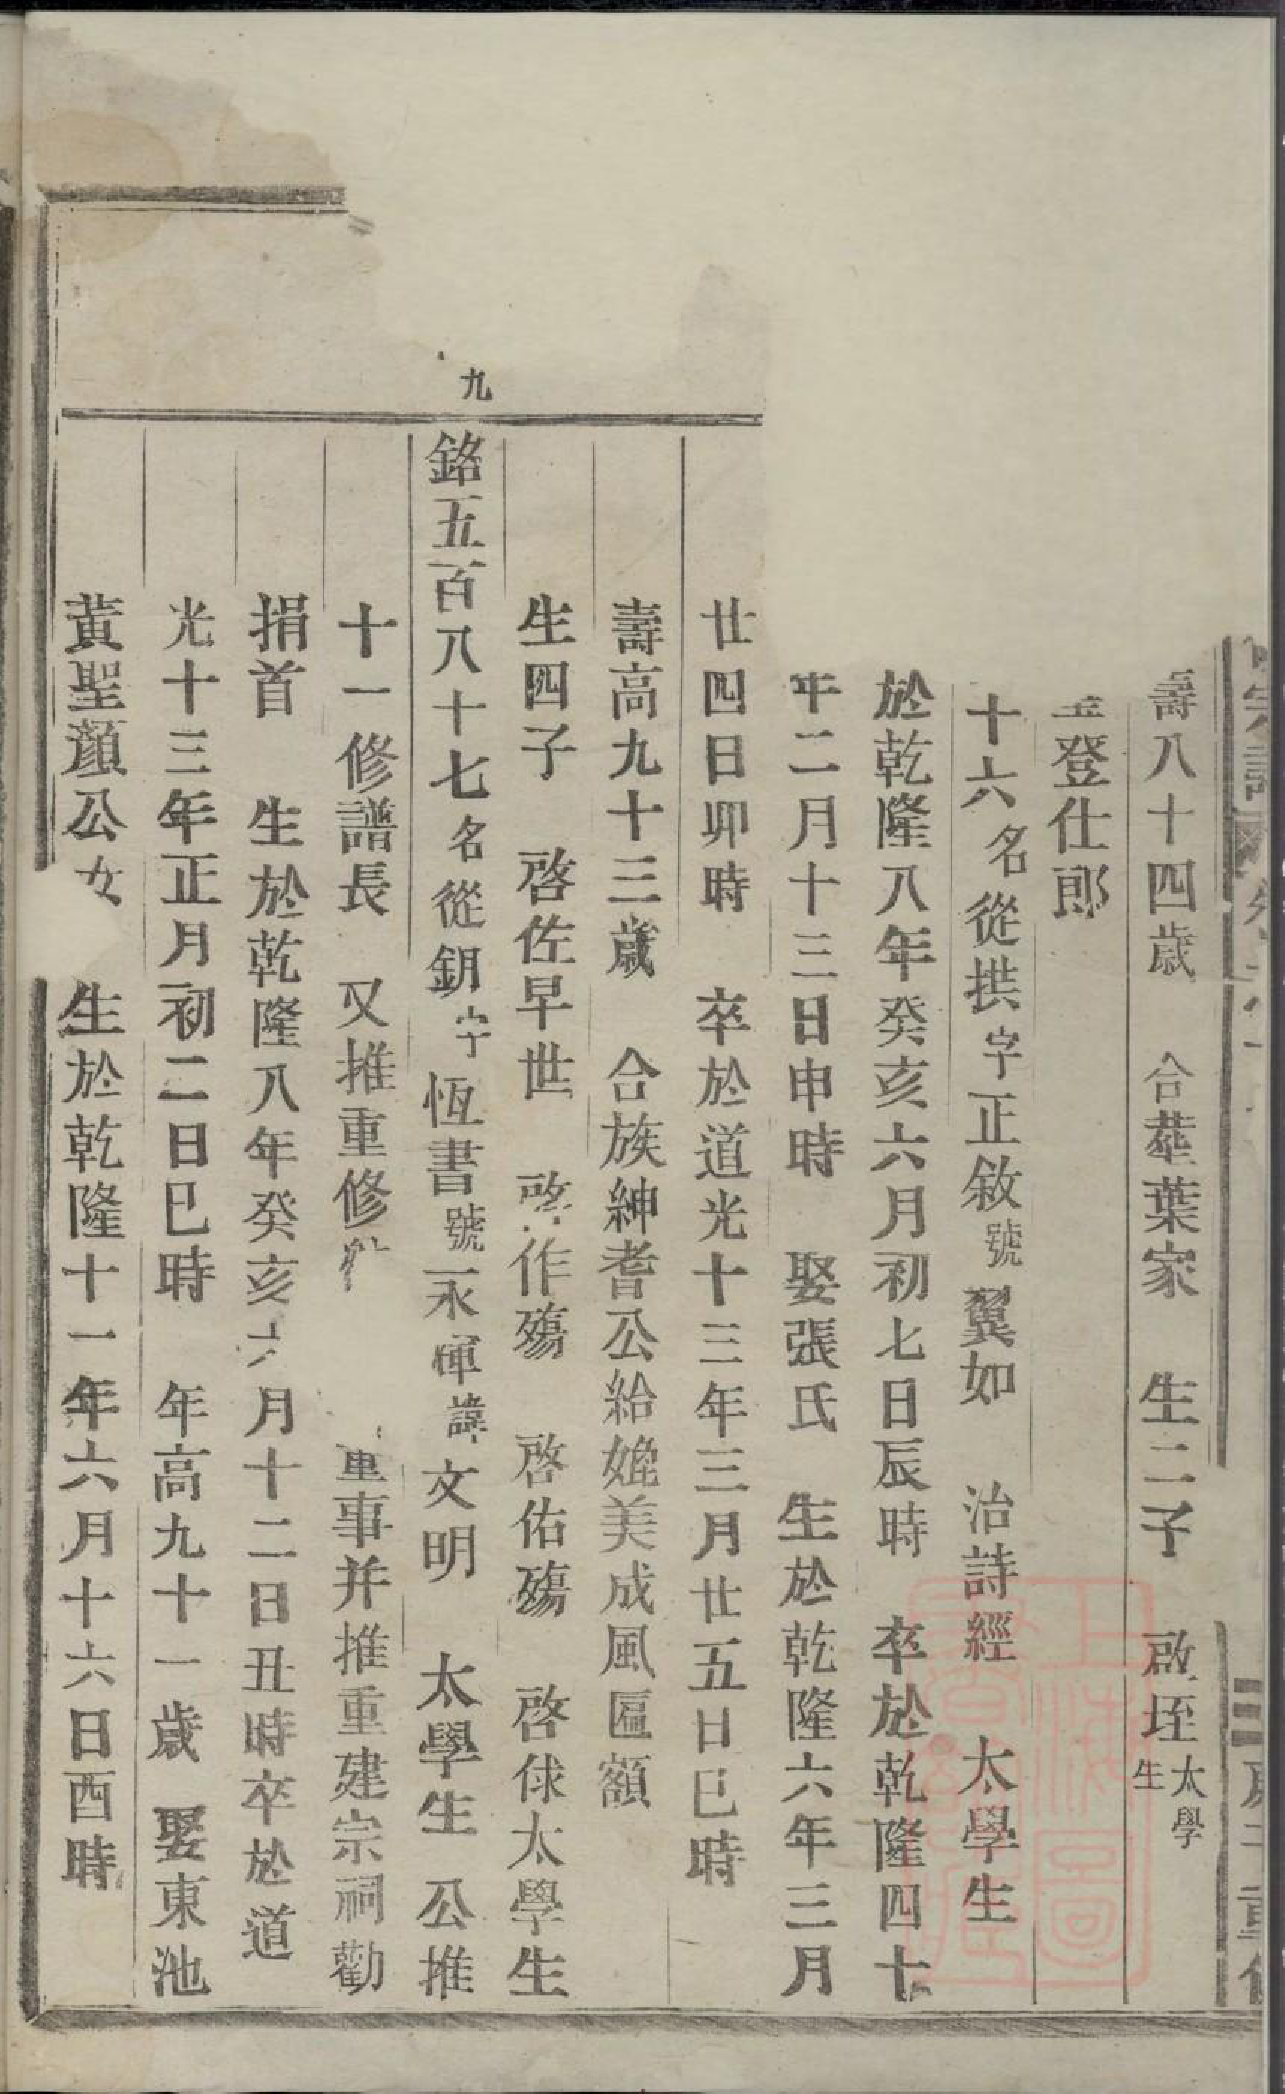 壽八十四歲 合葬葉家 生二子 啟垤太學生
登仕郎
十六名從拱字正敘號翼如 治詩經 太學生
於乾隆八年癸亥六月初七日辰時 卒於乾隆四十
年二月十三日申時 娶張氏 生於乾隆六年三月
廿四日卯時 卒於道光十三年三月廿五日巳時
壽高九十三歲 合族紳耆公給媲美成風匾額
生四子 啓佐早世 啓作殤 啓佑殤 啓俅太學生
九
銘五百八十七名從鈅字恆書號永暉諱文明 太學生 公推
十一修譜長 又推重修 重事并推重建宗祠勸
捐首 生於乾隆八年癸亥六月十二日丑時卒於道
光十三年正月初二日巳時 年高九十一歲 娶東池
黃聖顏公女 生於乾隆十一年六月十六日酉時